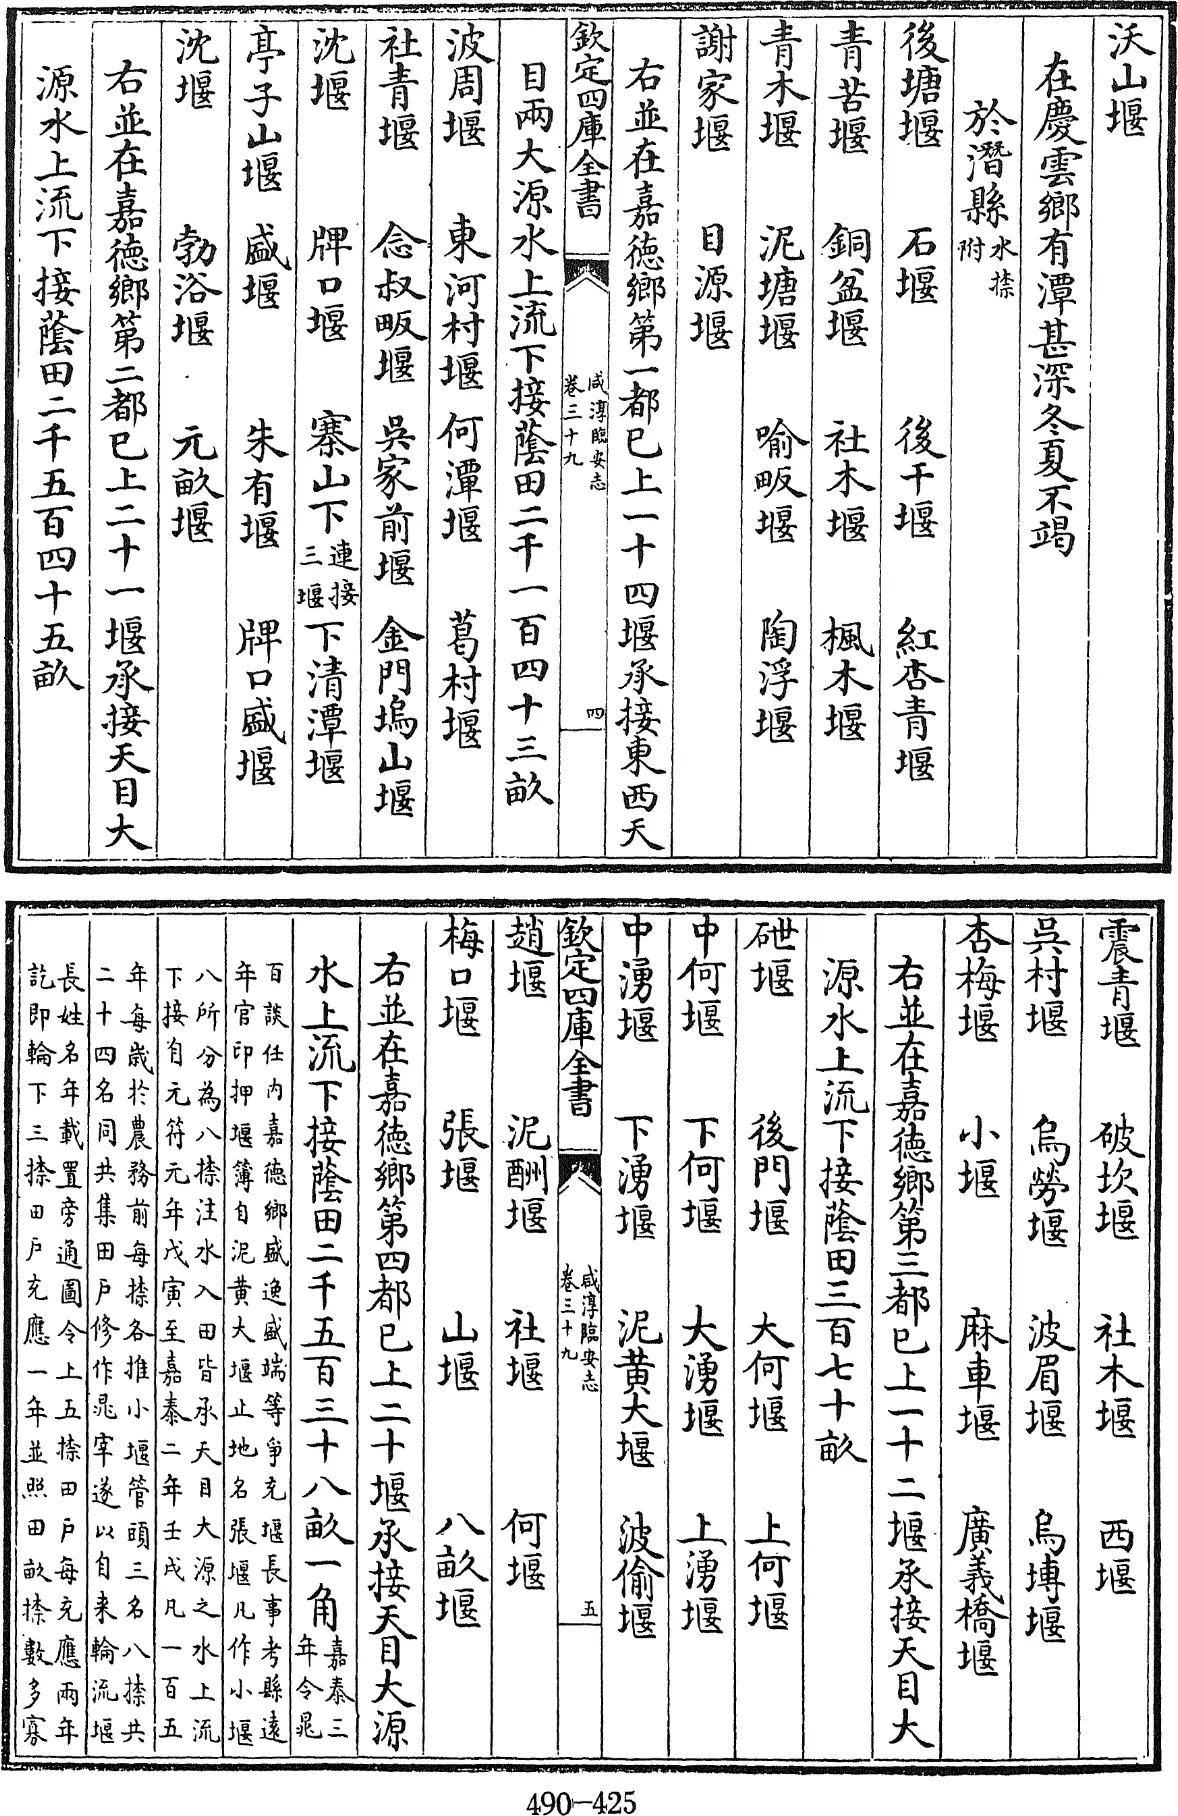 沃山堰
在慶雲鄉有潭甚深冬夏不竭
於潛縣 水捺
附
後塘堰 石堰 後干堰 紅杏青堰
青苦堰 銅盆堰 社木堰 楓木堰
青木堰 泥塘堰 喻畈堰 陶浮堰
謝家堰 目源堰
右並在嘉德鄉第一都已上一十四堰承接東西天
欽定四庫全書
咸淳臨安志
卷三十九
四
目兩大源水上流下接蔭田二千一百四十三畝
波周堰 東河村堰 何潭堰 葛村堰
社青堰 念叔畈堰 吳家前堰 金門塢山堰
沈堰 牌口堰 寨山下 連接
三堰 下清潭堰
亭子山堰 盛堰 朱有堰 牌口盛堰
沈堰 勃浴堰 元畝堰
右並在嘉德鄉第二都已上二十一堰承接天目大
源水上流下接蔭田二千五百四十五畝
震青堰 破坎堰 社木堰 西堰
吳村堰 烏勞堰 波眉堰 烏塼堰
杏梅堰 小堰 麻車堰 廣義橋堰
右並在嘉德鄉第三都已上一十二堰承接天目大
源水上流下接蔭田三百七十畝
堰 後門堰 大何堰 上何堰
中何堰 下何堰 大湧堰 上湧堰
中湧堰 下湧堰 泥黄大堰 波偷堰
欽定四庫全書
咸淳臨安志
卷三十九
五
趙堰 泥酬堰 社堰 何堰
梅口堰 張堰 山堰 八畝堰
右並在嘉德鄉第四都已上二十堰承接天目大源
水上流下接蔭田二千五百三十八畝一角 嘉泰三
年令晁
百談任内嘉德鄉盛逸盛端等爭充堰長事考縣遠
年官印押堰簿自泥黄大堰止地名張堰凡作小堰
八所分為八捺注水入田皆承天目大源之水上流
下接自元符元年戊寅至嘉泰二年壬戌凡一百五
年每歳於農務前每捺各推小堰管頭三名八捺共
二十四名同共集田戶修作晁宰遂以自来輪流堰
長姓名年載置旁通圖令上五捺田戶每充應兩年
訖即輪下三捺田戶充應一年並照田畝捺數多寡
490-425